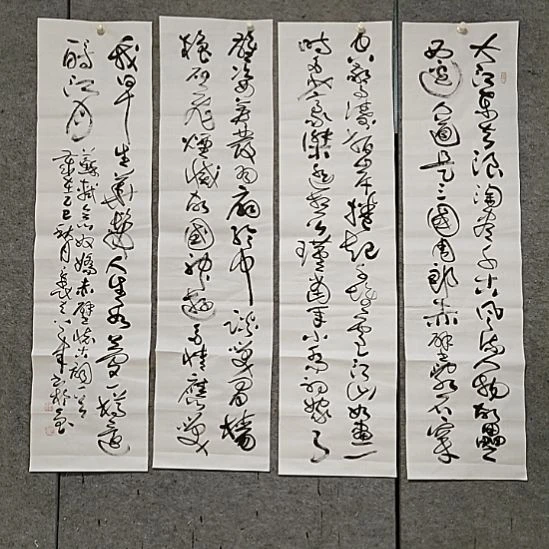 大江東去浪淘盡千古風流人物故壘
西邊人道是三國周郎赤壁亂石穿
空驚濤拍岸捲起千堆雪江山如畫一
時多少豪傑遥想公瑾當年小喬初嫁了
雄姿英發羽扇綸巾談笑間檣
櫓灰飛煙滅故國神遊多情應笑
我早生華髮人生如夢一樽還
酹江月
蘇軾念奴嬌赤壁懷古詞一首
歲在乙巳秋月